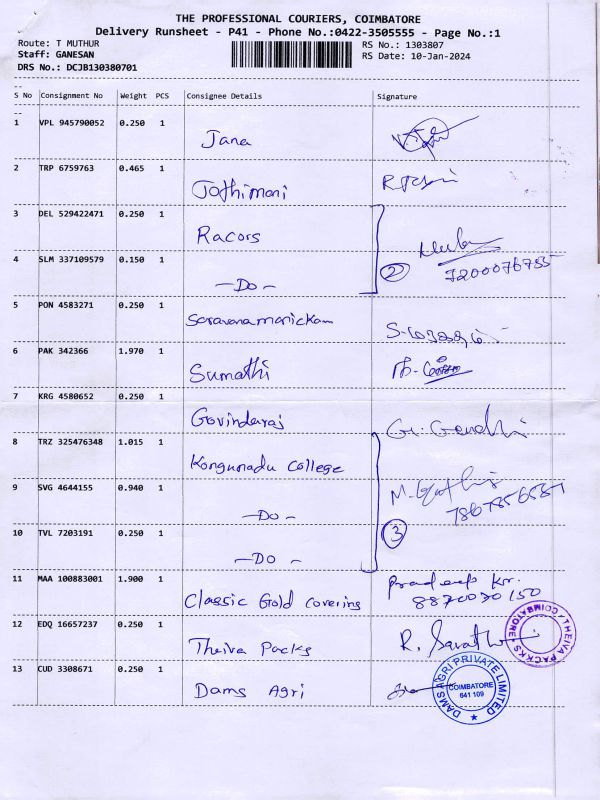 THE PROFESSIONAL COURIERS, COIMBATORE
Delivery Runsheet - P41 - Phone No.:0422-3505555 - Page No.:1
Route: T MUTHUR RS No.: 1303807
Staff: GANESAN RS Date: 10-Jan-2024
DRS No.: DCJB130380701
S No Consignment No Weight PCS Consignee Details Signature
1 VPL 945790052 0.250 1 Jana
2 TRP 6759763 0.465 1 Jothimani
3 DEL 529422471 0.250 1 Racors
4 SLM 337109579 0.150 1 —Do— 2
5 PON 4583271 0.250 1 Saravanamanickam
6 PAK 342366 1.970 1 Sumathi
7 KRG 4580652 0.250 1 Govindaraj
8 TRZ 325476348 1.015 1 Kongunadu College
9 SVG 4644155 0.940 1 —Do—
10 TVL 7203191 0.250 1 —Do— 3
11 MAA 100883001 1.900 1 Classic Gold covering Pradeep Kr.
8870030150
12 EDQ 16657237 0.250 1 Theiva Packs R. Sarath
THEIVA PACKS COIMBATORE
13 CUD 3308671 0.250 1 Dams Agri
DAMS AGRI PRIVATE LIMITED
COIMBATORE
641 109